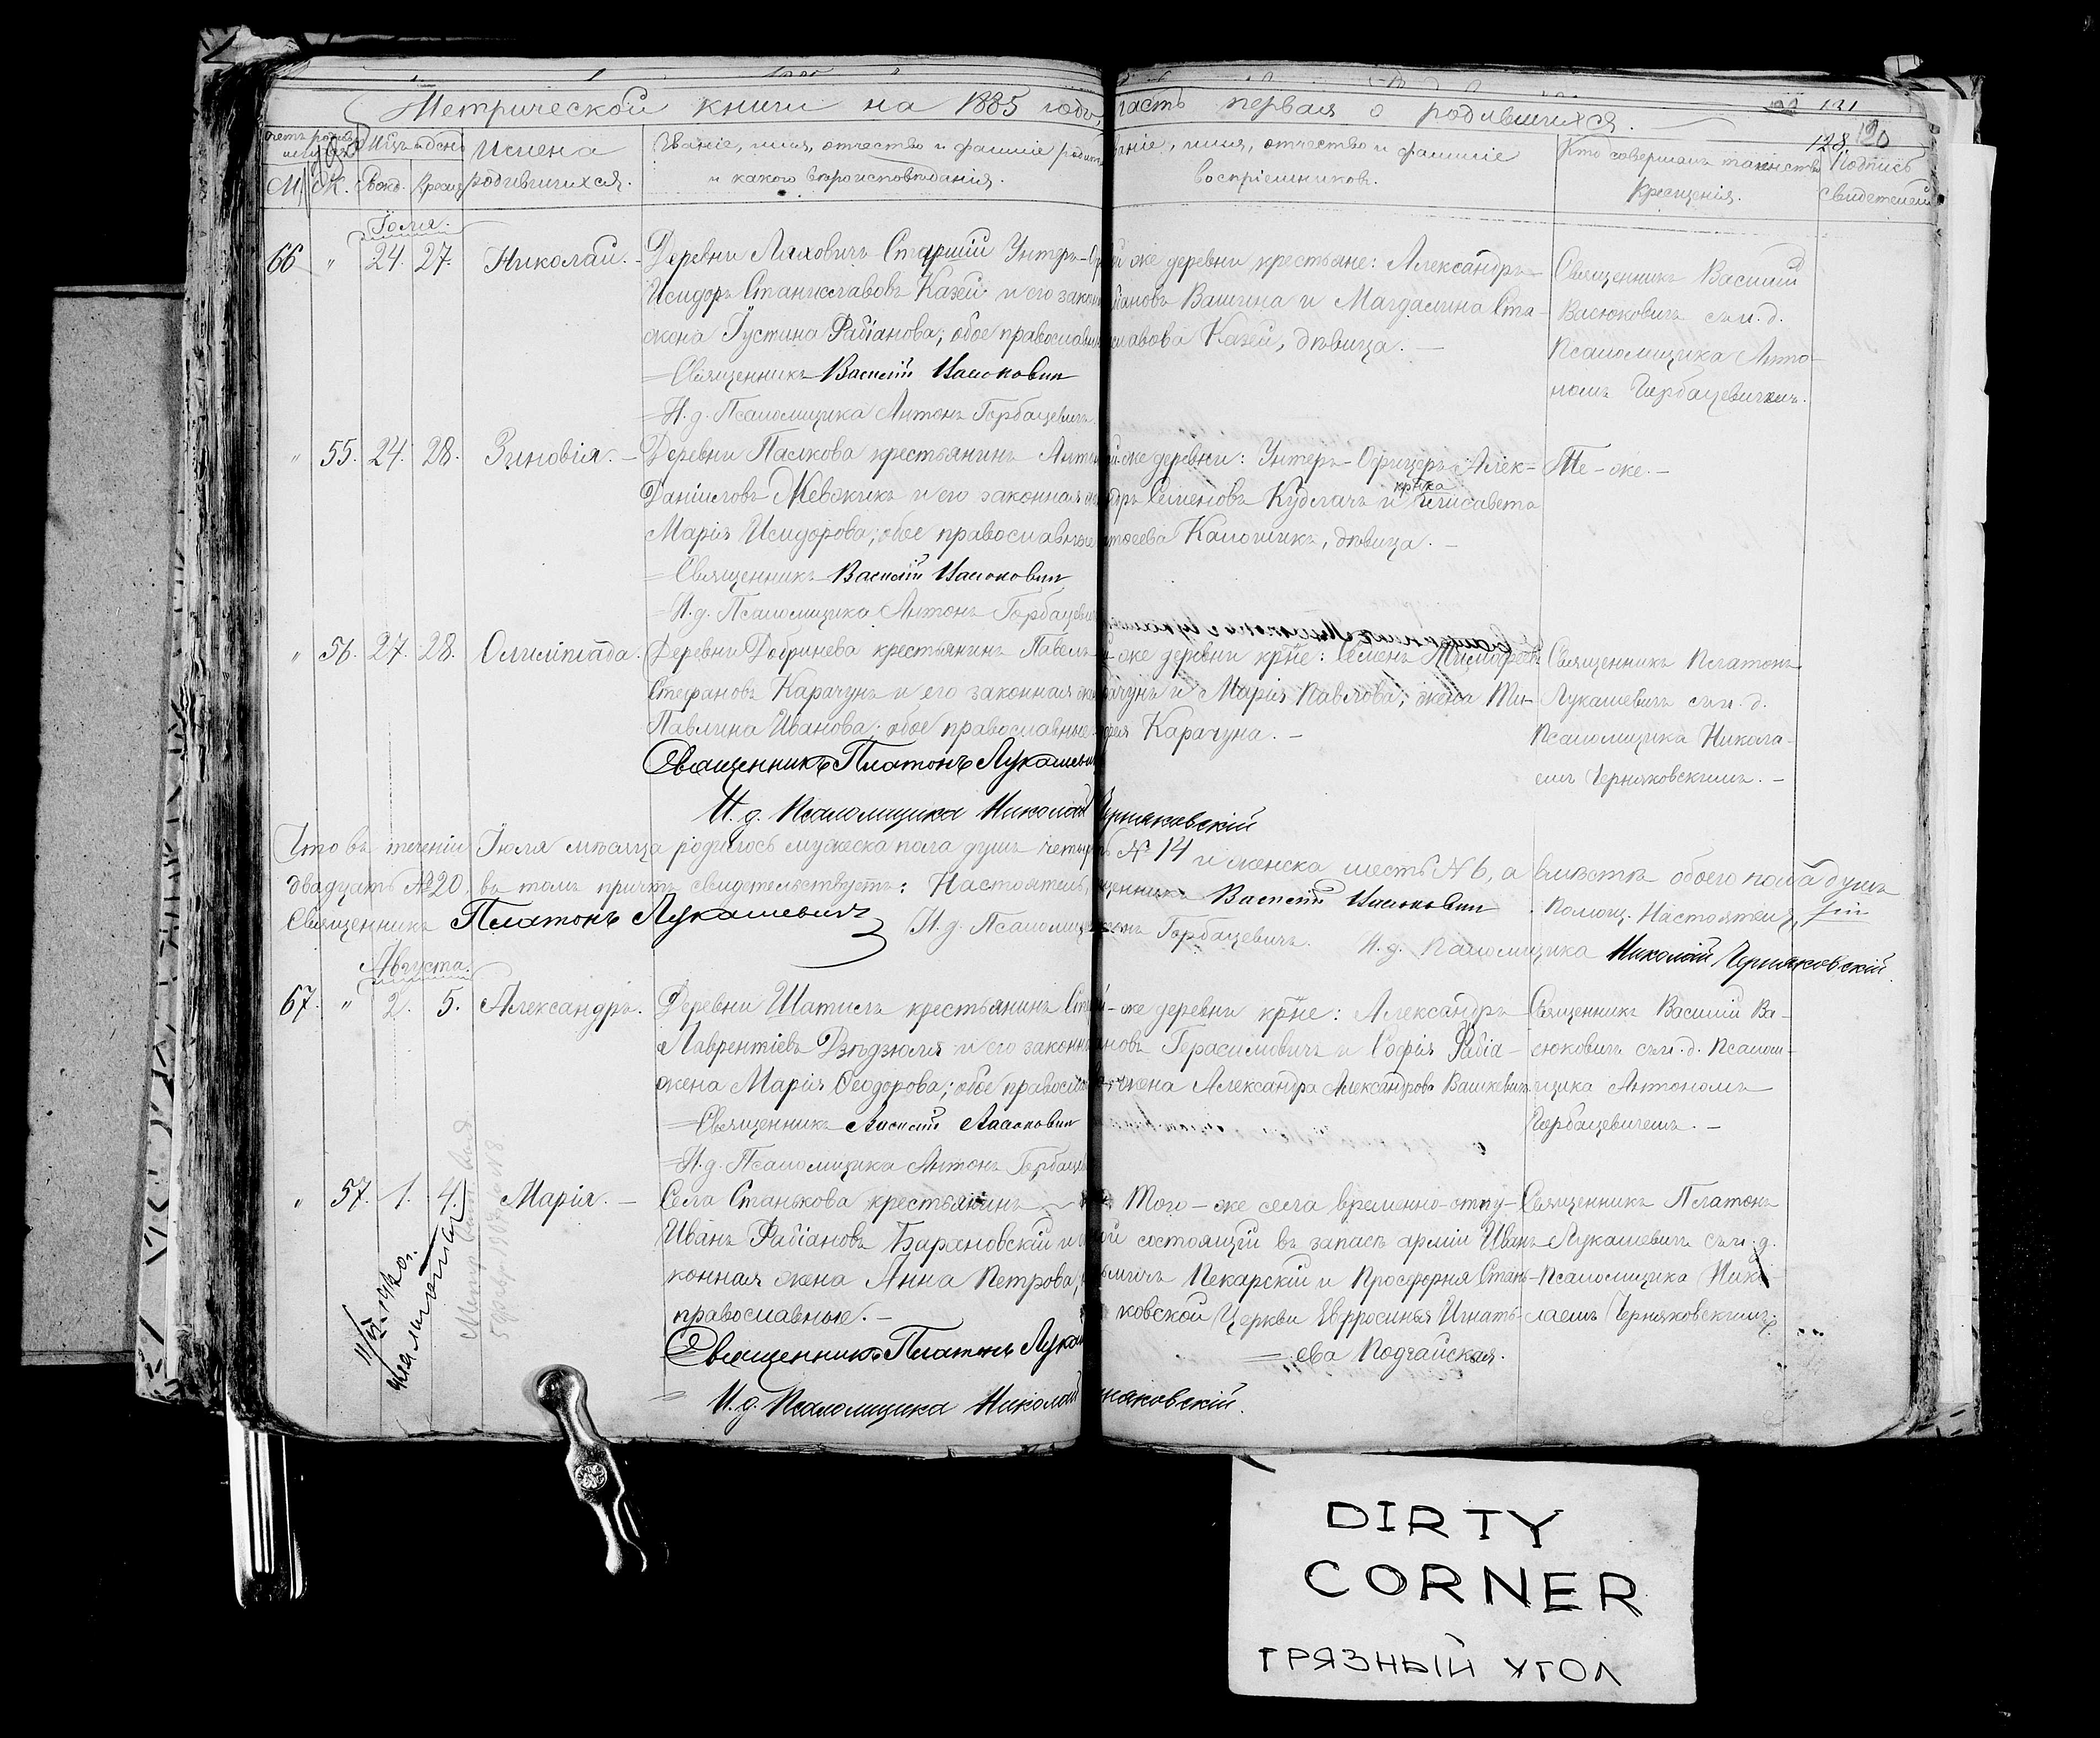 Метрической книги на 1885 годъ, часть первая о родившихся.
121
128 120
М. Ж. Рожд. Крещ.
Имена родившихся.
Званіе, имя, отчество и фамиліе
и какого вѣроисповѣданія.
званіе, имя, отчество и фамиліе
воспріемниковъ.
Кто совершалъ таинство
Крещенія.
Подпись
свидетелей
Іюля.
66 " 24. 27. Николай. -
Деревни Ляховичъ Старшій Унтеръ-
Исидоръ Станиславовъ Казей и его
жена Іустина Фабіанова; обое
Священникъ Василій Васюковичъ
И. д. Псаломщика Антонъ Горбацевичъ
же деревни крестьяне: Александръ
Вашина и Магдалина Ста-
Казей, дѣвица. -
Священникъ Василій
Васюковичъ съ и. д.
Псаломщика Анто-
номъ Горбацевичемъ.
" 55. 24. 28. Зиновія. -
Деревни Паслкова крестьянинъ
Даніиловъ Жевжикъ и его законная
Марія Исидорова; обое православные
Священникъ Василій Васюковичъ
И. д. Псаломщика Антонъ
же деревни: Унтеръ-Офицеръ Алек-
Семеновъ Кудлачъ и кр-ка Елисавета
Калошикъ, дѣвица. -
Тѣ-же. -
" 56. 27. 28. Олимпіада.
Деревни Добринева крестьянинъ Павелъ
Стефановъ Карачунъ и его законная
Павлина Иванова; обое православные
Священникъ Платонъ Лукашевичъ
И. д. Псаломщика Николай Черняковскій
же деревни кр-не: Семенъ Тимофеевъ
и Марія Павлова, жена Ти-
Карачуна. -
Священникъ Платонъ
Лукашевичъ съ и. д.
Псаломщика Никола-
емъ Черняковскимъ. -
Что въ теченіи Іюля мѣсяца родилось мужеска пола душъ № 14 и женска шесть № 6, а вмѣстѣ обоего пола душъ
двадцать № 20, въ томъ причтъ свидетельствуетъ: Настоятель, Василій Васюковичъ. Помощ. Настоятеля,
Священникъ Платонъ Лукашевичъ И. д. Горбацевичъ. И. д. Псаломщика Николай Черняковскій.
Августа.
67. " 2. 5. Александръ.
Деревни Шатилъ крестьянинъ
Лаврентіевъ Дзѣдзюля и его
жена Марія Ѳеодорова; обое
Священникъ Василій Васюковичъ
И. д. Псаломщика Антонъ
же деревни кр-не: Александръ
Герасимовичъ и Софія Фабіа-
жена Александра Александрова Вашкевичъ
Священникъ Василій Ва-
сюковичъ съ и. д. Псалом-
щика Антономъ
Горбацевичемъ. -
" 57. 1. 4. Марія. -
Села Станькова крестьянинъ
Иванъ Фабіановъ Барановскій и
конная жена Анна Петрова,
православные. -
Священникъ Платонъ
И. д. Псаломщика Николай
Того-же села временно-отпу-
состоящій въ запасѣ арміи Иванъ
Пекарскій и Просфорня Стань-
ковской Церкви Евфросинья Игнать-
ева Подгайская.
Священникъ Платонъ
Лукашевичъ съ и. д.
Псаломщика Нико-
лаемъ Черняковскимъ.
DIRTY
CORNER
ГРЯЗНЫЙ УГОЛ